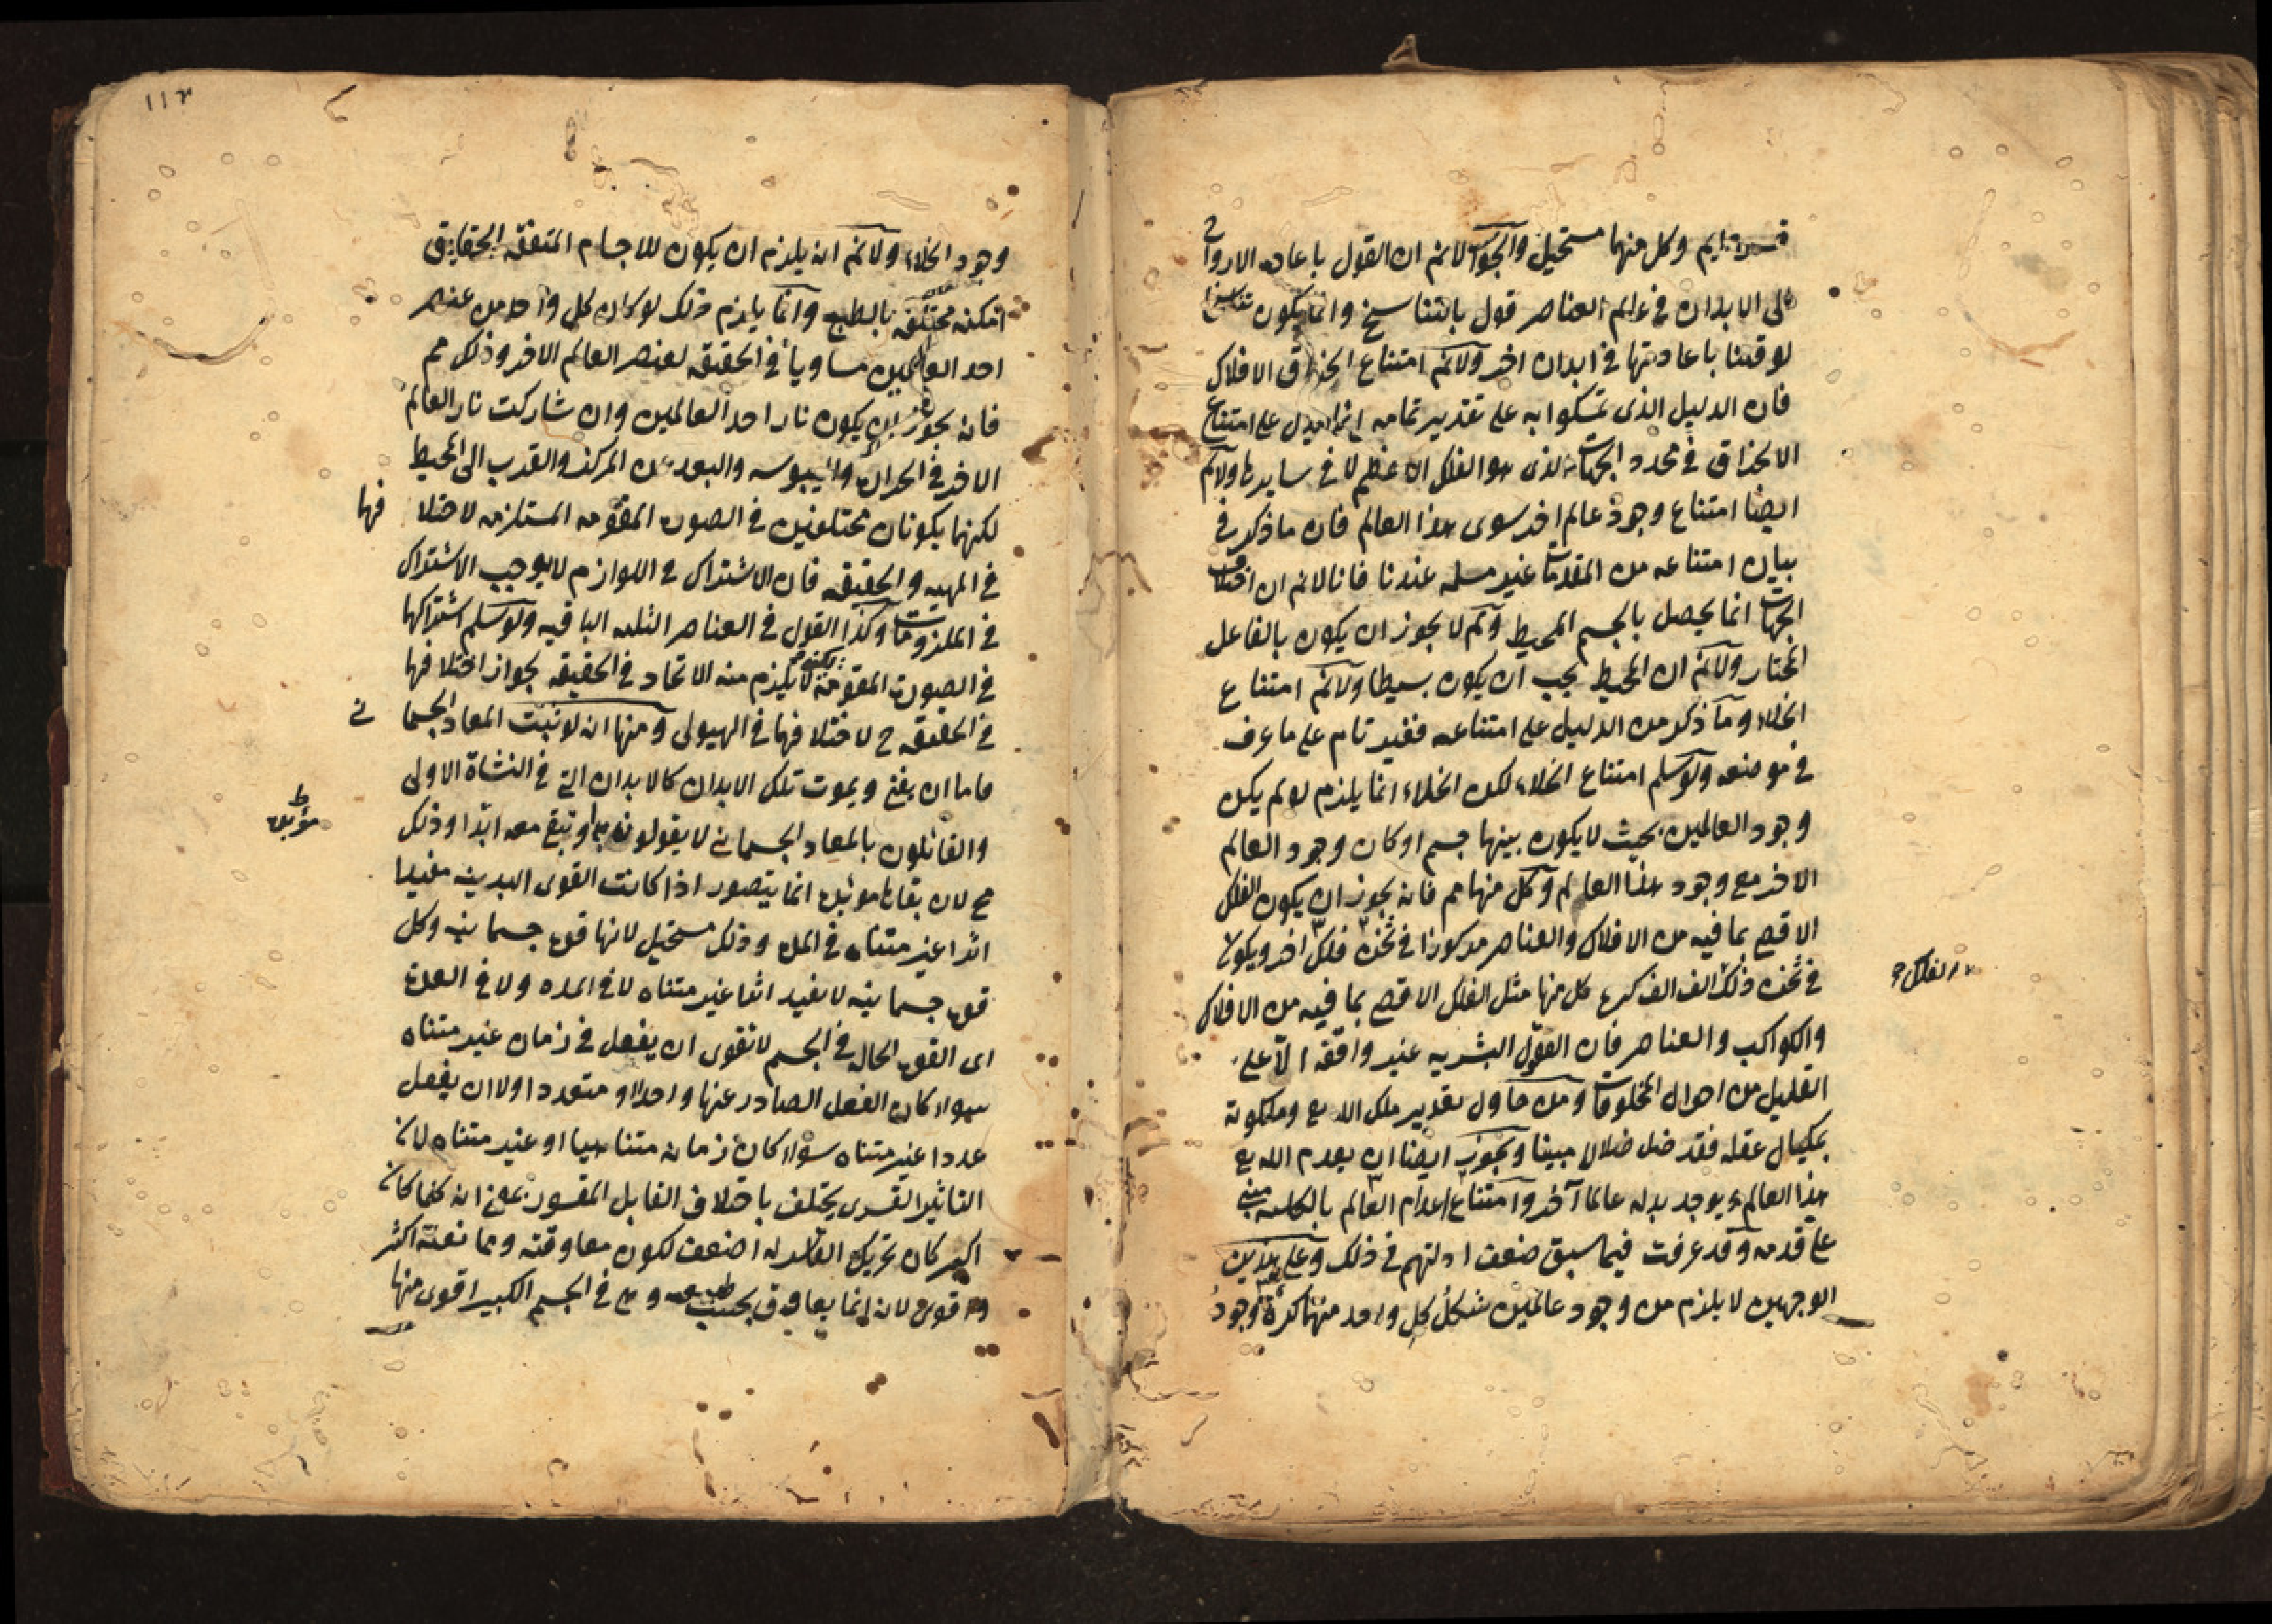 وكل منها مستحيل والجواب لانم ان القول باعاده الارواح
الى الابدان في عالم العناصر قول بالتناسخ وانما يكون تناسخا
لو قلنا باعادتها في ابدان اخر ولانم امتناع انخراق الافلاك
فان الدليل الذى تمسكوا به على تقدير تمامه انما يدل على امتناع
الانخراق في محدد الجهات الذى هو الفلك الاعظم لا في سايرها ولانم
ايضا امتناع وجود عالم اخر سوى هذا العالم فان ما ذكر في
بيان امتناعه من المقدمات غير مسلمه عندنا فانا لانم ان اختلاف
الجهات انما يحصل بالجسم المحيط ولم لا يجوز ان يكون بالفاعل
المختار ولانم ان المحيط يجب ان يكون بسيطا ولانم امتناع
الخلاء وما ذكر من الدليل على امتناعه فغير تام على ما عرف
في موضعه ولو سلم امتناع الخلاء لكن الخلاء انما يلزم لو لم يكن
وجود العالمين بحيث لا يكون بينها جسم او كان وجود العالم
الاخر مع وجود هذا العالم وكل منها مم فانه يجوز ان يكون الفلك
الاقصى بما فيه من الافلاك والعناصر مركوزا في ثخن فلك اخر ويكون
في ثخن ذلك الف الف كره كل منها مثل الفلك الاقصى بما فيه من الافلاك
الفلك
والكواكب والعناصر فان القول البشريه غير واقفه الا على
القليل من احوال المخلوقات ومن حاول تقدير ملك الله تع وملكوته
بمكيال عقله فقد ضل ضلالا مبينا ويجوز ايضا ان يعدم الله تع
هذا العالم ويوجد بدله عالما آخر وامتناع اعدام العالم بالكليه مبنى
على قدمه وقد عرفت فيما سبق ضعف ادلتهم في ذلك وعلى هذين
الوجهين لا يلزم من وجود عالمين شكل كل واحد منهما كرة وجود
١١٣
وجود الخلاء ولانم انه يلزم ان يكون للاجسام المتفقه الحقايق
امكنه مختلفه بالطبع وانما يلزم ذلك لو كان كل واحد من عنصر
احد العالمين مساويا في الحقيقه لعنصر العالم الاخر وذلك مم
فانه يجوز ان يكون نار احد العالمين وان شاركت نار العالم
الاخر في الحرارة واليبوسه والبعد عن المركز والقرب الى المحيط
لكنهما يكونان مختلفين في الصورة المقومه المستلزمه لاختلا فهما
في المهيه والحقيقه فان الاشتراك في اللوازم لا يوجب الاشتراك
في الملزومات وكذا القول في العناصر الثلثه الباقيه ولو سلم اشتراكها
في الصورة المقومة لا يلزم منه الاتحاد في الحقيقه لجواز اختلافها
في الحقيقه ح لاختلافها في الهيولى ومنها انه لو ثبت المعاد الجسما نى
فاما ان يفنى ويموت تلك الابدان كالابدان التى في النشاة الاولى
والقائلون بالمعاد الجسمانى لا يقولون به او تبقى معه ابدا وذلك
مح لان بقاءها مؤبدة انما يتصور اذا كانت القوى البدنيه مفيدا
اثرا غير متناه في المدة وذلك مستحيل لانها قوة جسمانيه وكل
قوة جسمانيه لا تفيد اثرا غير متناه لا في المده ولا في العدة
اى القوة الحاله في الجسم لا تقوى ان يفعل في زمان غير متناه
سواء كان الفعل الصادر عنها واحدا او متعددا ولا ان يفعل
عددا غير متناه سواء كان زمانه متناهيا او غير متناه لان
التاثير القسرى يختلف باختلاف القابل المقسور بمعنى انه كلما كان
اكبر كان تحريك القاسر له اضعف لكون معاوقته وممانعته اكثر
واقوى لانه انما يعاوق بحسب طبيعته وهى في الجسم الكبير اقوى منها